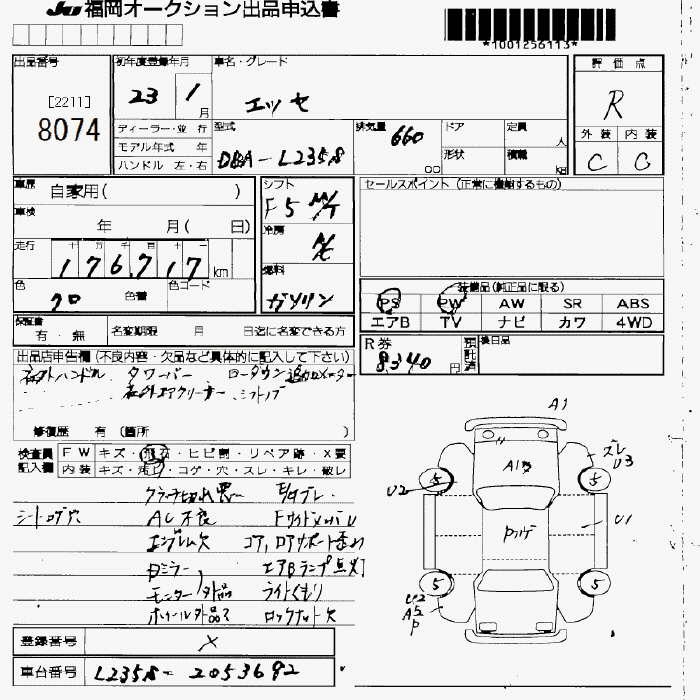 JU 福岡オークション出品申込書
*1001256113*
出品番号
[2211]
8074
初年度登録年月
23 1 月
車名・グレード
エッセ
評価点
R
外装 内装
C C
ディーラー・並 行
モデル年式 年
ハンドル 左・右
型式
DBA-L235S
排気量
660
CC
ドア
形状
定員 人
積載 kg
車歴
自家用( )
車検
年 月( 日)
走行
十 万 千 百 十
176,717 km
色
クロ
色替
色コード
シフト
F5 M/T
冷房
A/C
燃料
ガソリン
セールスポイント (正常に機能するもの)
装備品(純正品に限る)
PS PW AW SR ABS
エアB TV ナビ カワ 4WD
保証書
有・無
名変期限 月 日迄に名変できる方
R券
8,340 円
預託済
後日品
出品店申告欄 (不良内容・欠品など具体的に記入して下さい)
社外ハンドル タワーバー ローダウン 追加メーター
社外エアクリーナー シフトノブ
修復歴 有 (箇所 )
検査員記入欄
FW キズ・飛石・ヒビ割・リペア跡・X要
内装 キズ・汚れ・コゲ・穴・スレ・キレ・散レ
クラッチ切れ悪
シートコゲ穴 AC不良
エンブレム欠 コア,ロアサポート歪み
Dミラー エアBランプ点灯
モニター 外品 ライトくもり
ホイール外品 ロックナット欠
A1
ズレ
U3
U2
U1
U2
A2
P
5 5 5 5
登録番号
X
車台番号
L235S-2053692